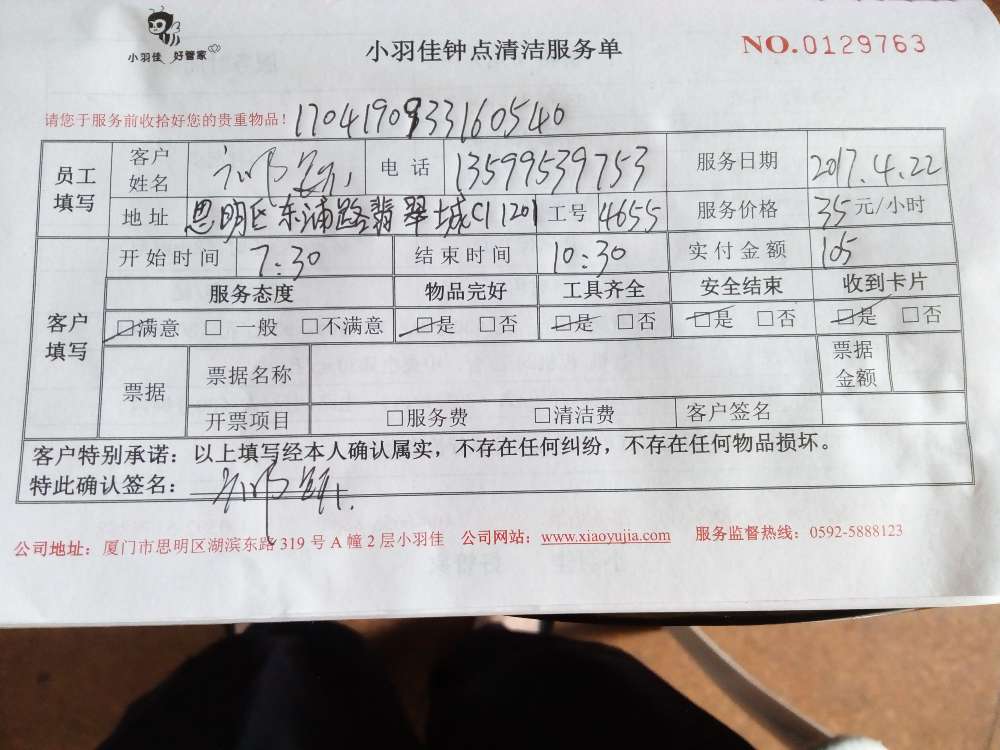 小羽佳 好管家
小羽佳钟点清洁服务单
NO.0129763
请您于服务前收拾好您的贵重物品！ 1704190933160540
员工填写 客户姓名 电话 13599539753 服务日期 2017.4.22
地址 思明区东浦路翡翠城C1 1201 工号 4655 服务价格 35元/小时
客户填写 开始时间 7:30 结束时间 10:30 实付金额 105
服务态度 物品完好 工具齐全 安全结束 收到卡片
☑满意 □一般 □不满意 ☑是 □否 ☑是 □否 ☑是 □否 ☑是 □否
票据 票据名称 票据金额
开票项目 □服务费 □清洁费 客户签名
客户特别承诺：以上填写经本人确认属实，不存在任何纠纷，不存在任何物品损坏。
特此确认签名：
公司地址：厦门市思明区湖滨东路319号A幢2层小羽佳 公司网站：www.xiaoyujia.com 服务监督热线：0592-5888123